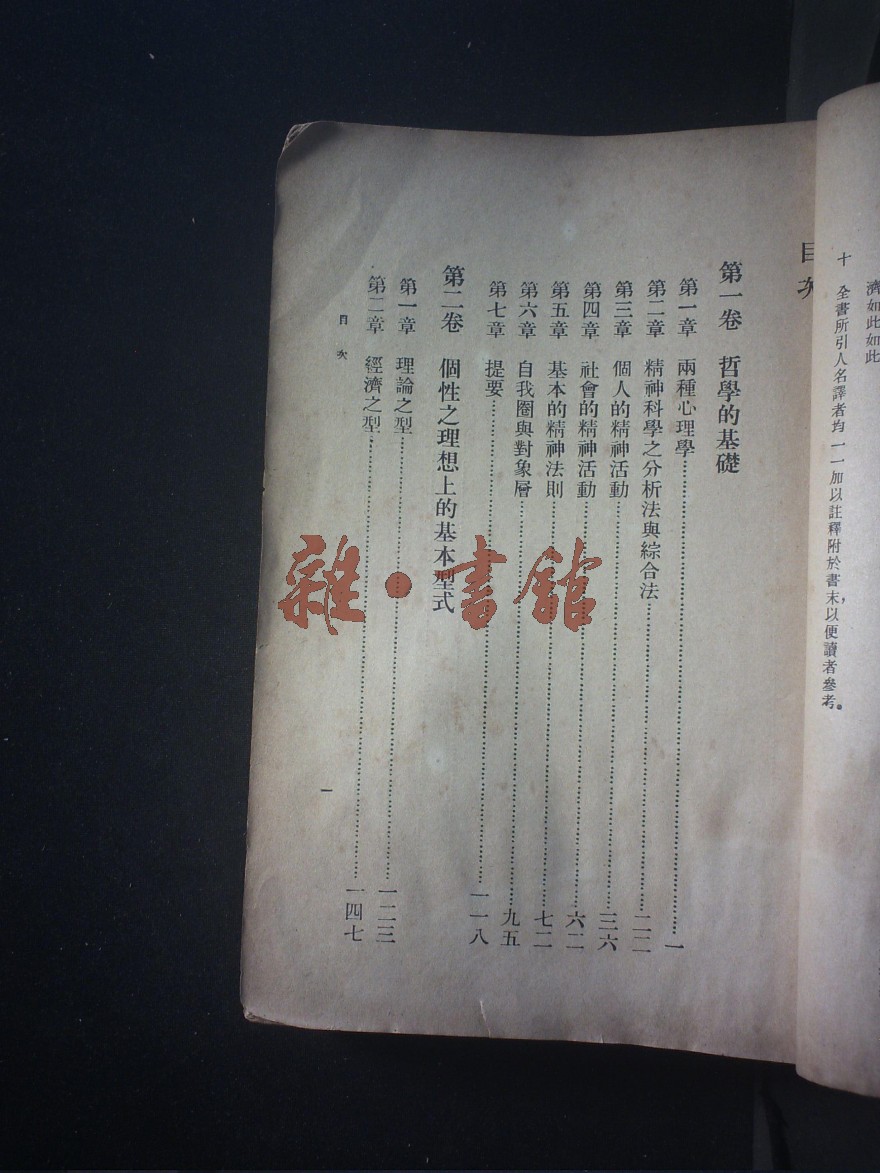 濟如此如此
十 全書所引人名譯者均一一加以註釋附於書末，以便讀者參考。
目次
第一卷 哲學的基礎
第一章 兩種心理學……一
第二章 精神科學之分析法與綜合法……二二
第三章 個人的精神活動……三六
第四章 社會的精神活動……六二
第五章 基本的精神法則……七二
第六章 自我圈與對象層……九五
第七章 提要……一一八
第二卷 個性之理想上的基本型式
第一章 理論之型……一二三
第二章 經濟之型……一四七
目次
一
雜·書館